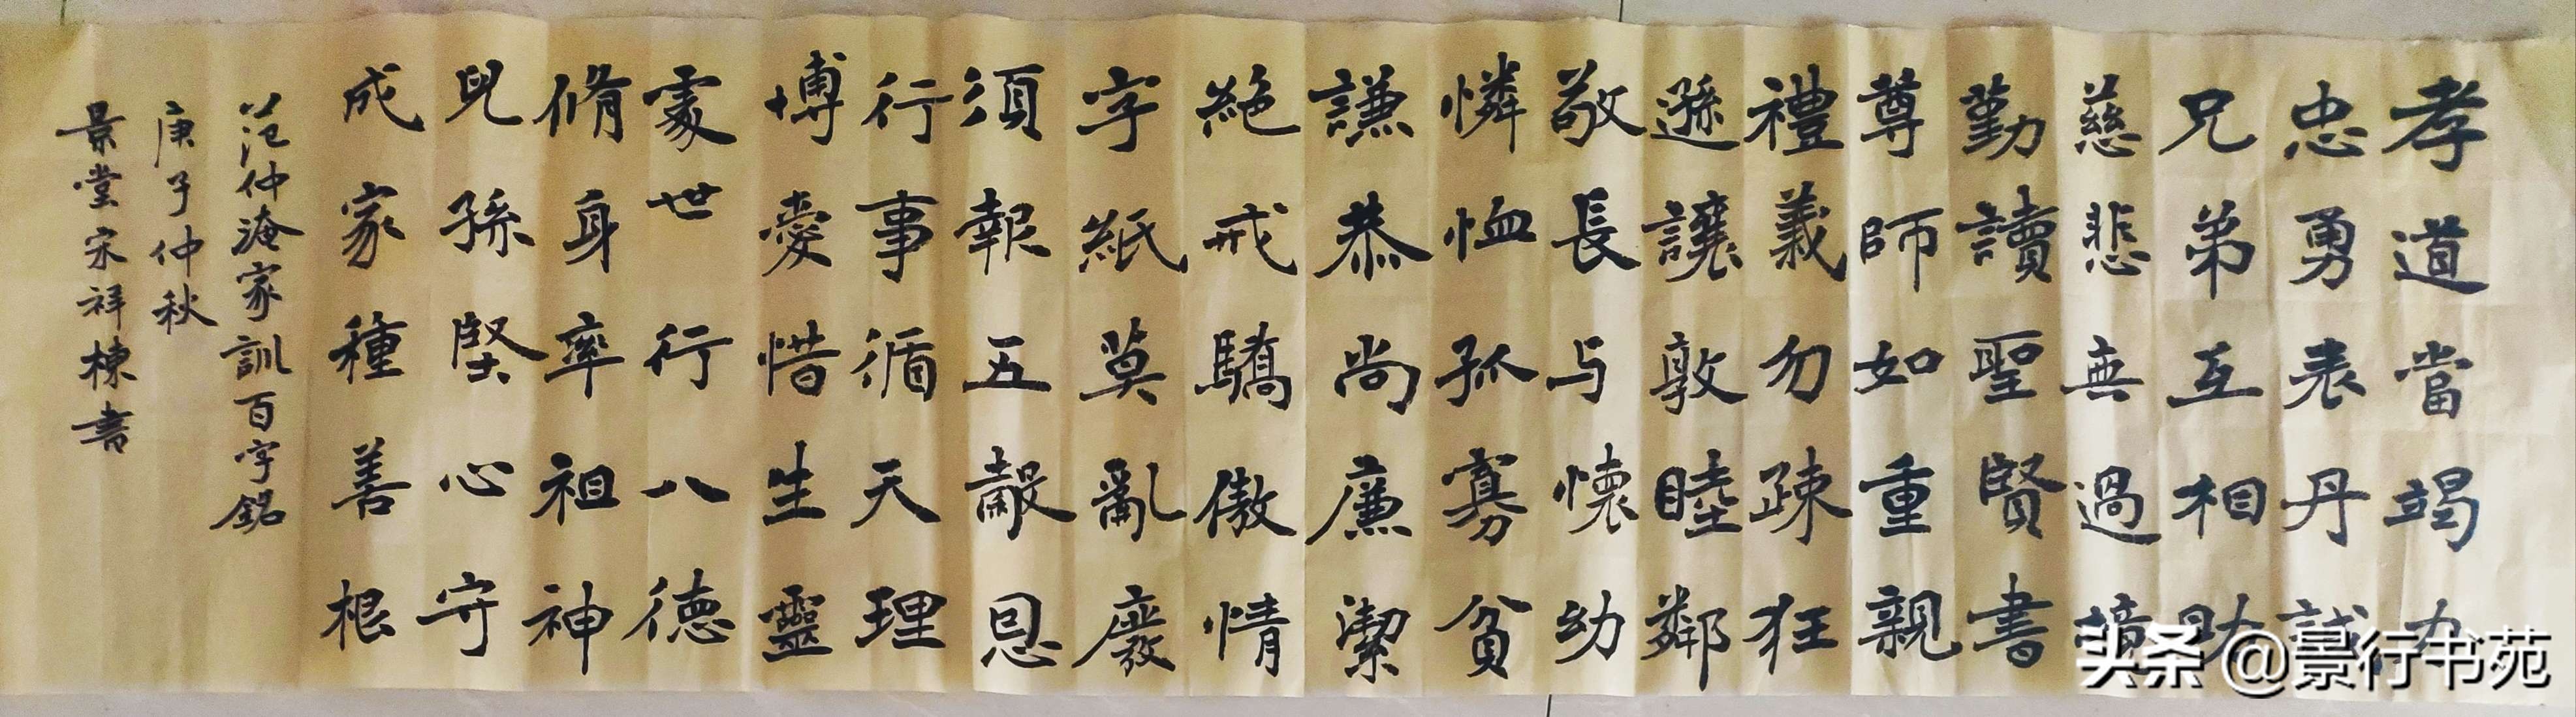 孝道當竭力
忠勇表丹誠
兄弟互相助
慈悲無過境
勤讀聖賢書
尊師如重親
禮義勿疎狂
遜讓敦睦鄰
敬長与懷幼
憐恤孤寡貧
謙恭尚廉潔
絶戒驕傲情
字紙莫亂廢
須報五穀恩
行事循天理
博愛惜生靈
處世行八德
脩身率祖神
兒孫堅心守
成家種善根
范仲淹家訓百字銘
庚子仲秋
景堂宋祥棟書
头条 @景行书苑